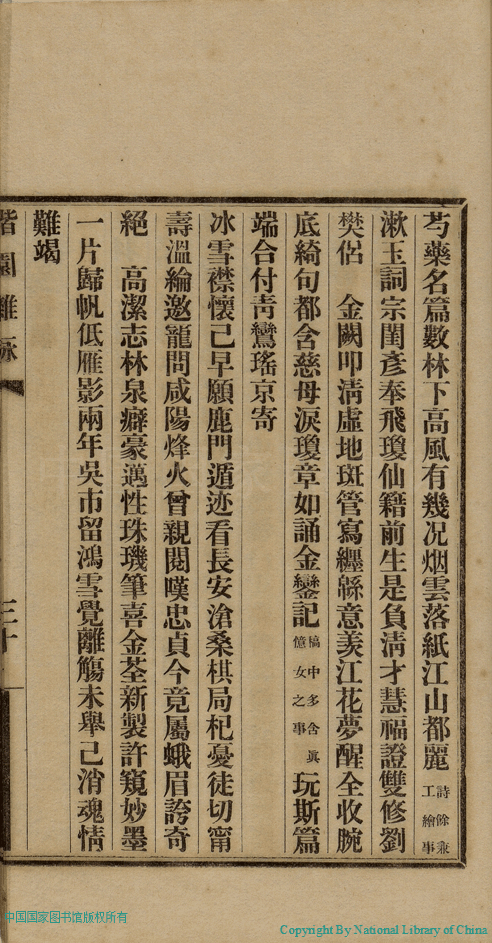 芍藥名篇數林下高風有幾况烟雲落紙江山都麗詩餘兼工繪事
漱玉詞宗閨彥奉飛瓊仙籍前生是負淸才慧福證雙修劉
樊侶　金闕叩淸虛地斑管寫纒緜意羡江花夢醒全收腕
底綺句都含慈母淚瓊章如誦金鑾記稿中多含眞憶女之事玩斯篇
端合付靑鸞瑤京寄
冰雪襟懷己早願鹿門遁迹看長安滄桑棋局杞憂徒切甯
壽溫綸邀寵問咸陽烽火曾親閱嘆忠貞今竟屬蛾眉誇奇
絕　高潔志林泉癖豪邁性珠璣筆喜金荃新製許窺妙墨
一片歸帆低雁影兩年吳市留鴻雪覺離觴未舉己消魂情
難竭
園雜詠
三十
中国国家图书馆版权所有
Copyright By National Library of China